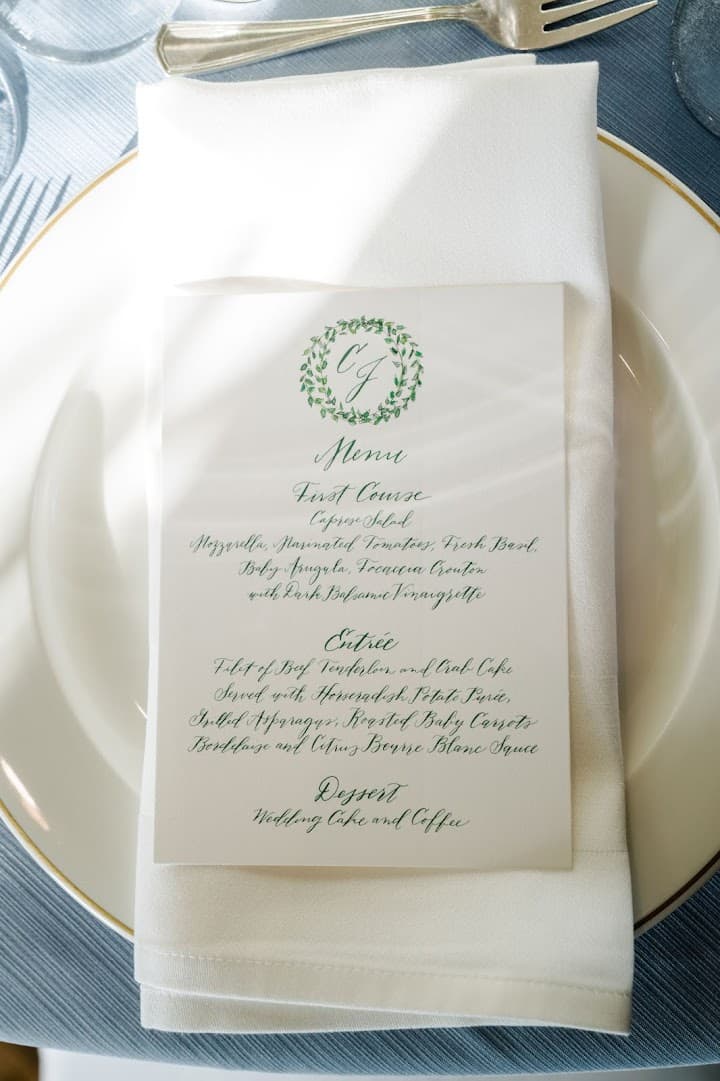 C J
Menu
First Course
Caprese Salad
Mozzarella, Marinated Tomatoes, Fresh Basil,
Baby Arugula, Focaccia Crouton
with Dark Balsamic Vinaigrette
Entrée
Filet of Beef Tenderloin and Crab Cake
Served with Horseradish Potato Purée,
Grilled Asparagus, Roasted Baby Carrots
Bordelaise and Citrus Beurre Blanc Sauce
Dessert
Wedding Cake and Coffee